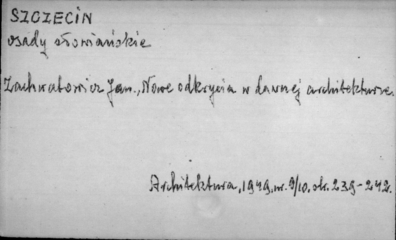 SZCZECIN
osady słowiańskie
Zachwatowicz Jan., Nowe odkrycia w dawnej architekturze.
Architektura, 1949, nr. 9/10, str. 239-242.